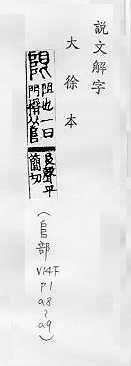 説文解字
大徐本
限 阻也一曰
門榍从𨸏
艮聲乎
簡切
(𨸏部
V14F
P1
a8
~
a9)